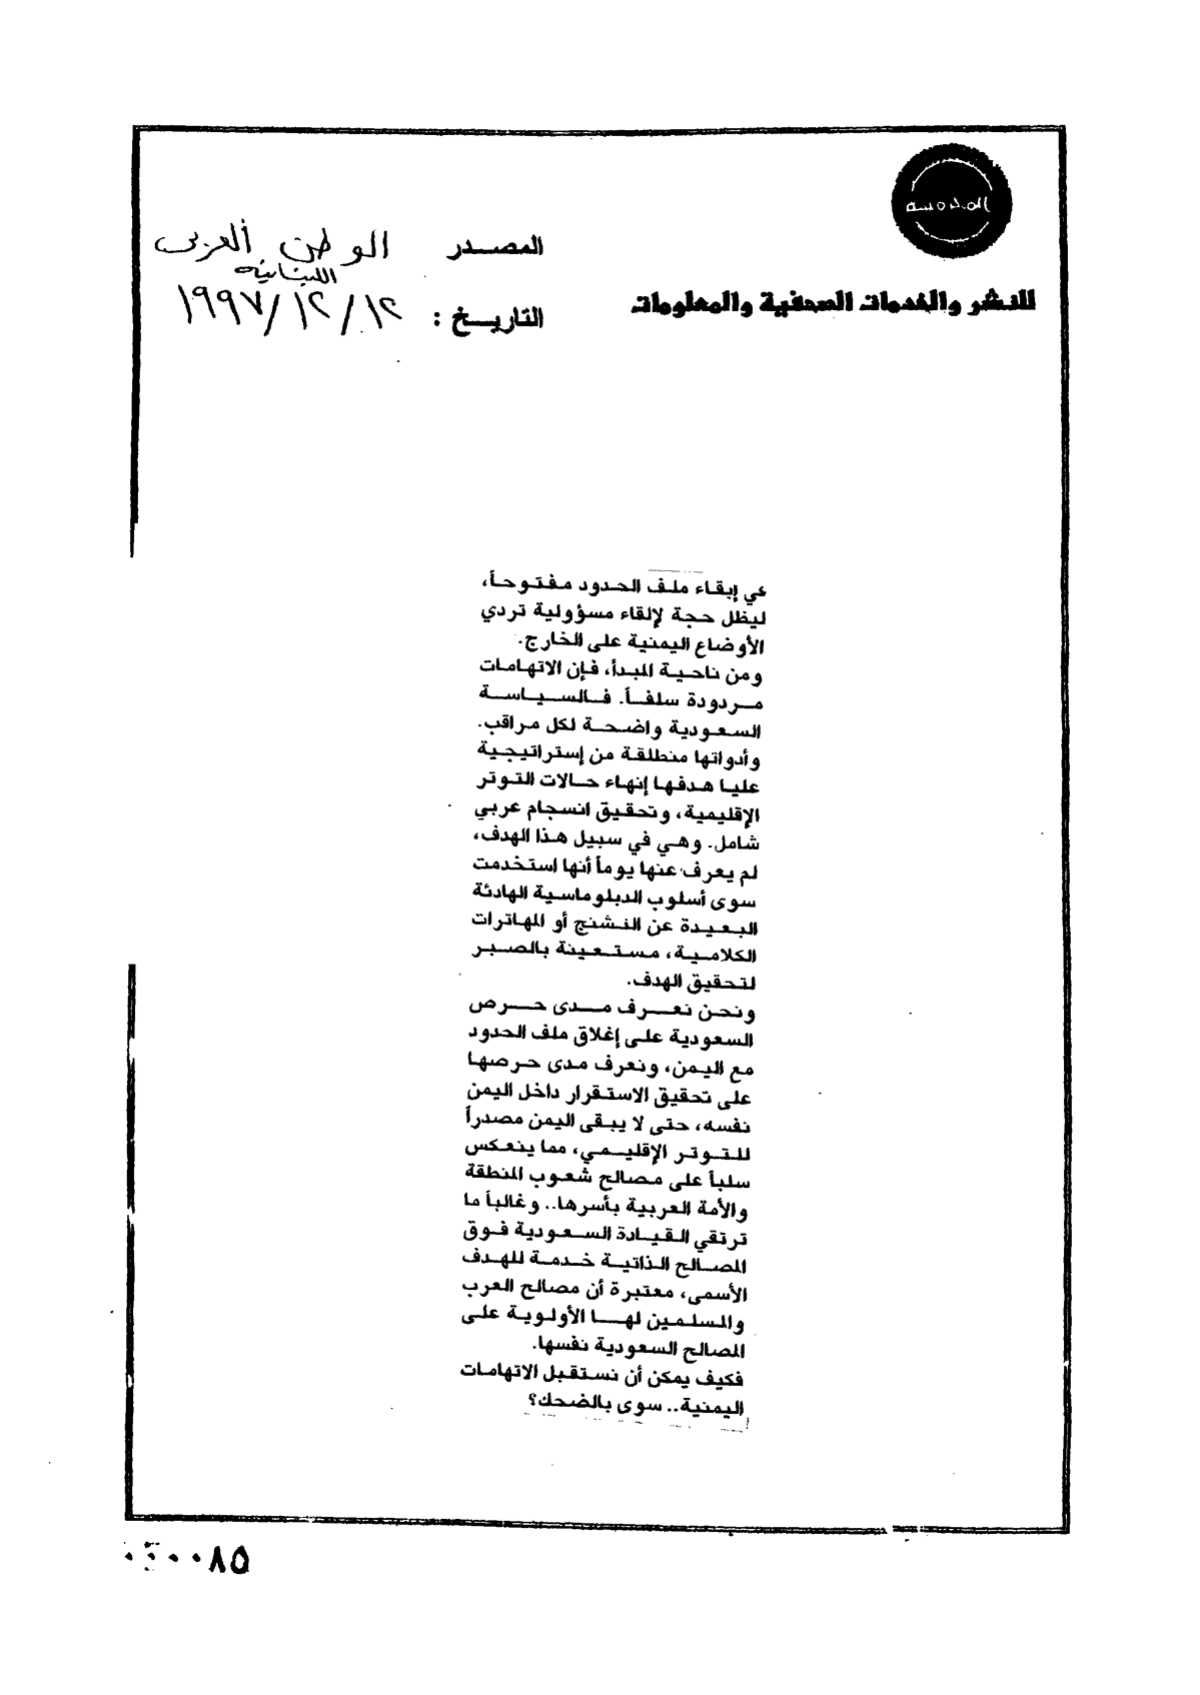 للنشر والخدمات الصحفية والمعلومات
المصدر الوطن العربي
اللبنانية
التاريخ : ١٢/١٢/١٩٩٧
في إبقاء ملف الحدود مفتوحاً،
ليظل حجة لإلقاء مسؤولية تردي
الأوضاع اليمنية على الخارج.
ومن ناحية المبدأ، فإن الاتهامات
مردودة سلفاً. فالسياسة
السعودية واضحة لكل مراقب.
وأدواتها منطلقة من إستراتيجية
عليا هدفها إنهاء حالات التوتر
الإقليمية، وتحقيق انسجام عربي
شامل. وهي في سبيل هذا الهدف،
لم يعرف عنها يوماً أنها استخدمت
سوى أسلوب الدبلوماسية الهادئة
البعيدة عن التشنج أو المهاترات
الكلامية، مستعينة بالصبر
لتحقيق الهدف.
ونحن نعرف مدى حرص
السعودية على إغلاق ملف الحدود
مع اليمن، ونعرف مدى حرصها
على تحقيق الاستقرار داخل اليمن
نفسه، حتى لا يبقى اليمن مصدراً
للتوتر الإقليمي، مما ينعكس
سلباً على مصالح شعوب المنطقة
والأمة العربية بأسرها.. وغالباً ما
ترتقي القيادة السعودية فوق
المصالح الذاتية خدمة للهدف
الأسمى، معتبرة أن مصالح العرب
والمسلمين لها الأولوية على
المصالح السعودية نفسها.
فكيف يمكن أن نستقبل الاتهامات
اليمنية.. سوى بالضحك؟